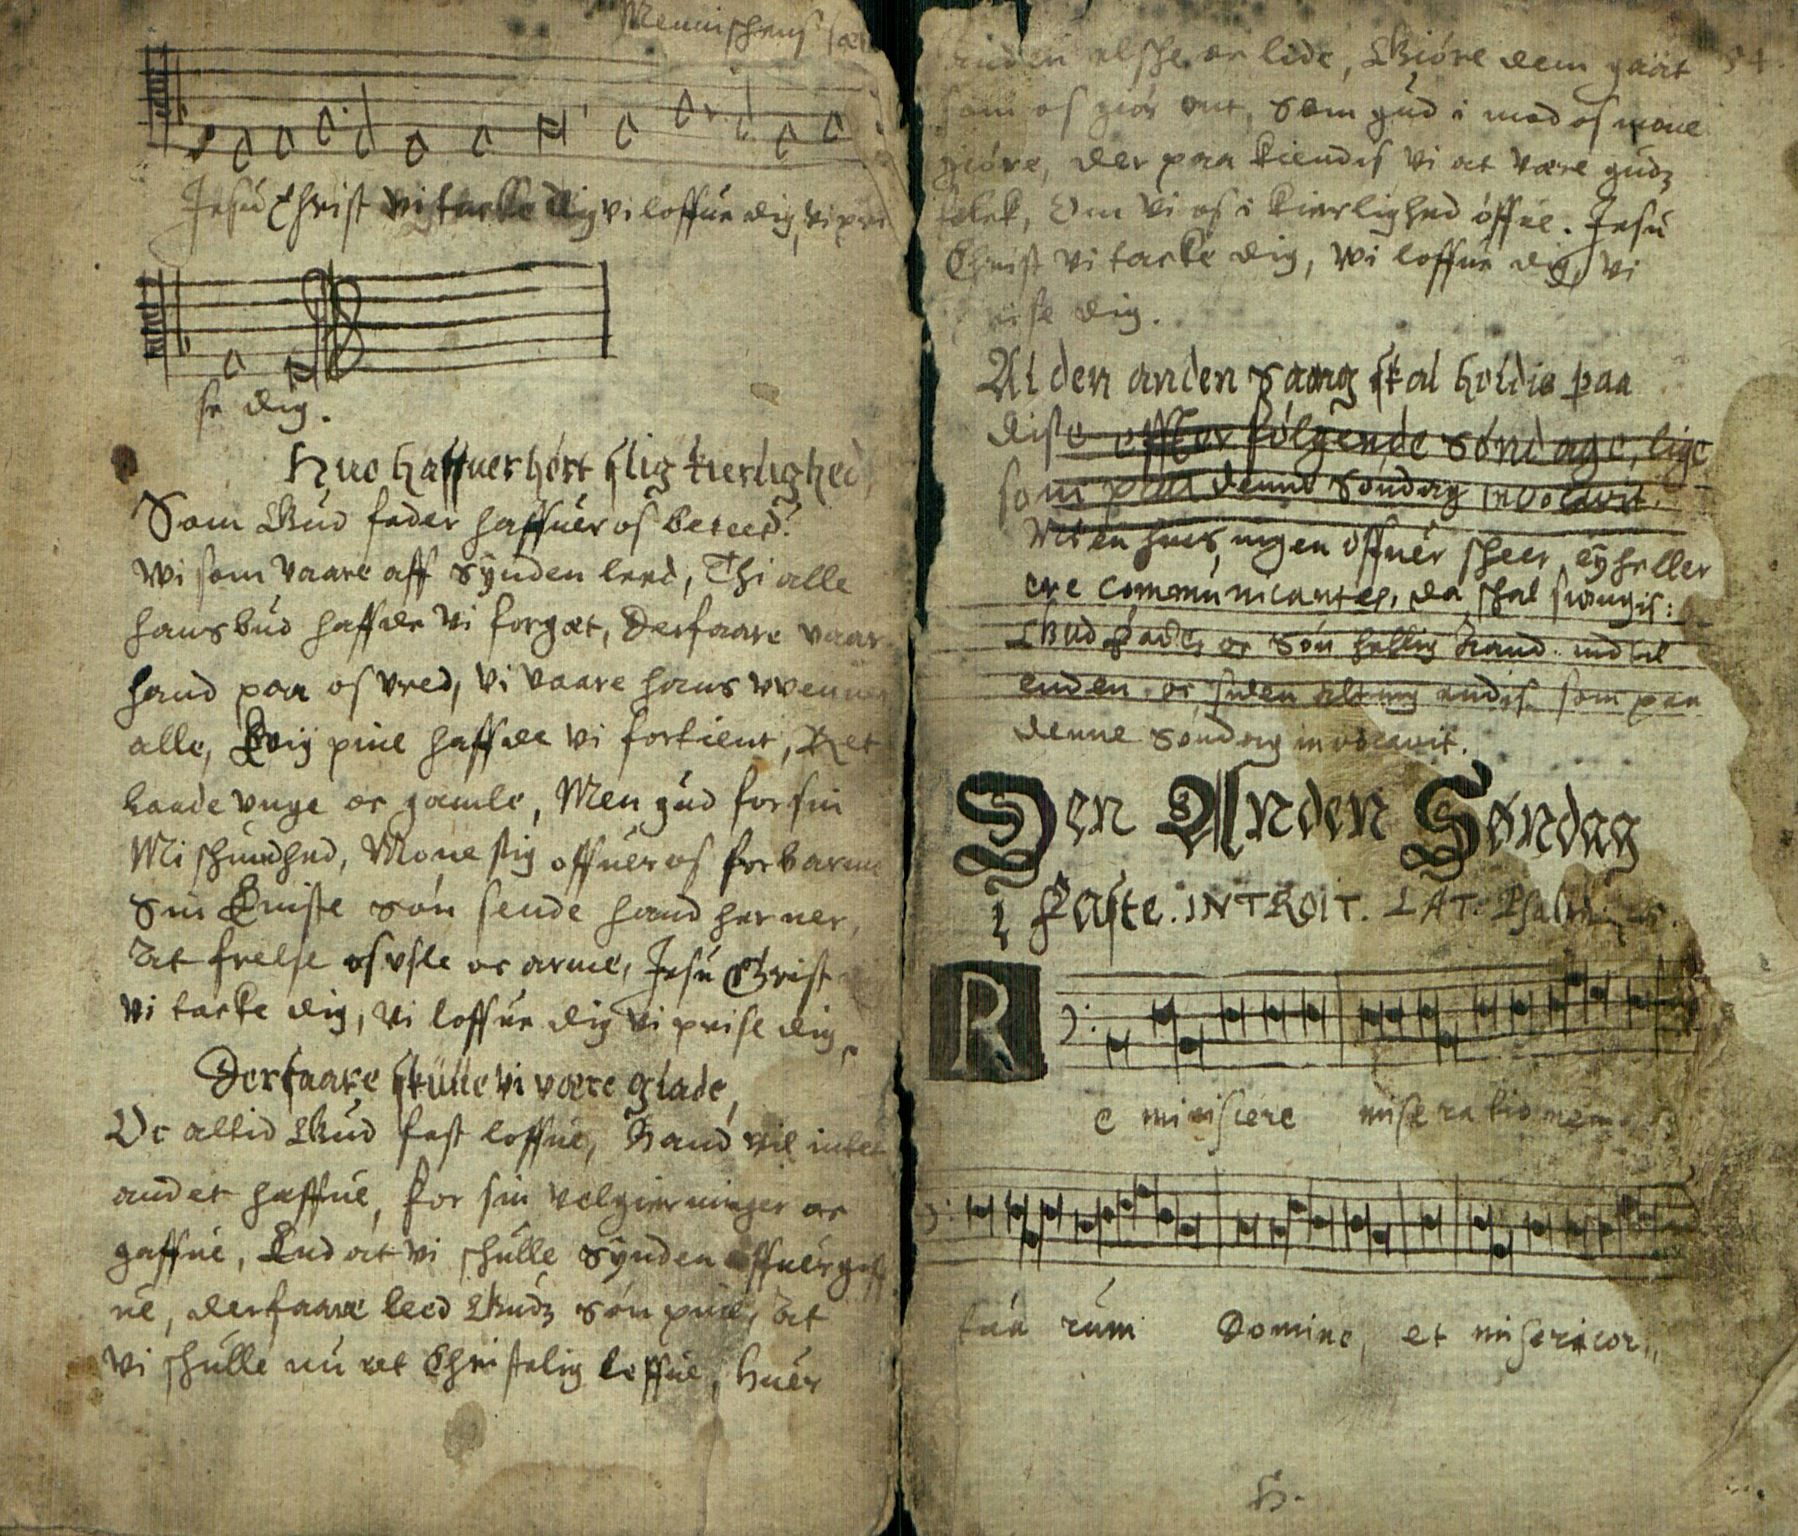 Mennischens
Jesu Christ vi tacke dig vi loffue dig, vi pri
se dig.
Huo haffuer hørt slig kierlighed,
Som Gud fader haffuer os beteed?
Wi som vaare aff Synden leed, Thi alle
hans bud haffde vi forgæt, Derfaare vaar
hand paa os vred, vi vaare hans vvenner
alle, Evig pine haffde vi fortient, Ret
baade vnge oc gamle, Men gud for sin
Mischundhed, Mone sig offuer os forbarme
Sin Eniste søn sende hand her ner,
At frelse os vsle oc arme, Jesu Christ
vi tacke dig, vi loffue dig vi prise dig,
Derfaare skulle vi være glade,
Oc altid Gud fast loffue, Hand vil intet
andet haffue, for sin velgierninger oc
gaffue, End at vi schulle Synden offuergiff
ue, derfaare leed Gudz søn pine, At
vi schulle nu ret Christelig leffue, huer
anden elsche oc lide, Giøre dem gaat
som os giør ont, Som gud i mod os mone
giøre, der paa kiendis vi at være gudz
folck, Om vi os i kierlighed øffue. Jesu
Christ vi tacke dig, wi loffue dig, vi
prise dig.
Al den anden Saang skal holdis paa
disse effter følgende Søndage, lige
som paa denne Søndag invocavit.
Men hvis ingen offuer scheer, ey heller
ere communicanter, da schal siungis:
Gud Fader oc Søn hellig Aand. ind til
enden. oc siden alting endis som paa
denne Søndag invocavit.
Den Anden Søndag
i Faste. INTROIT. LAT. Psalm. 25.
R
e miniscere miserationem
tua rum Domine, et misericor
H.